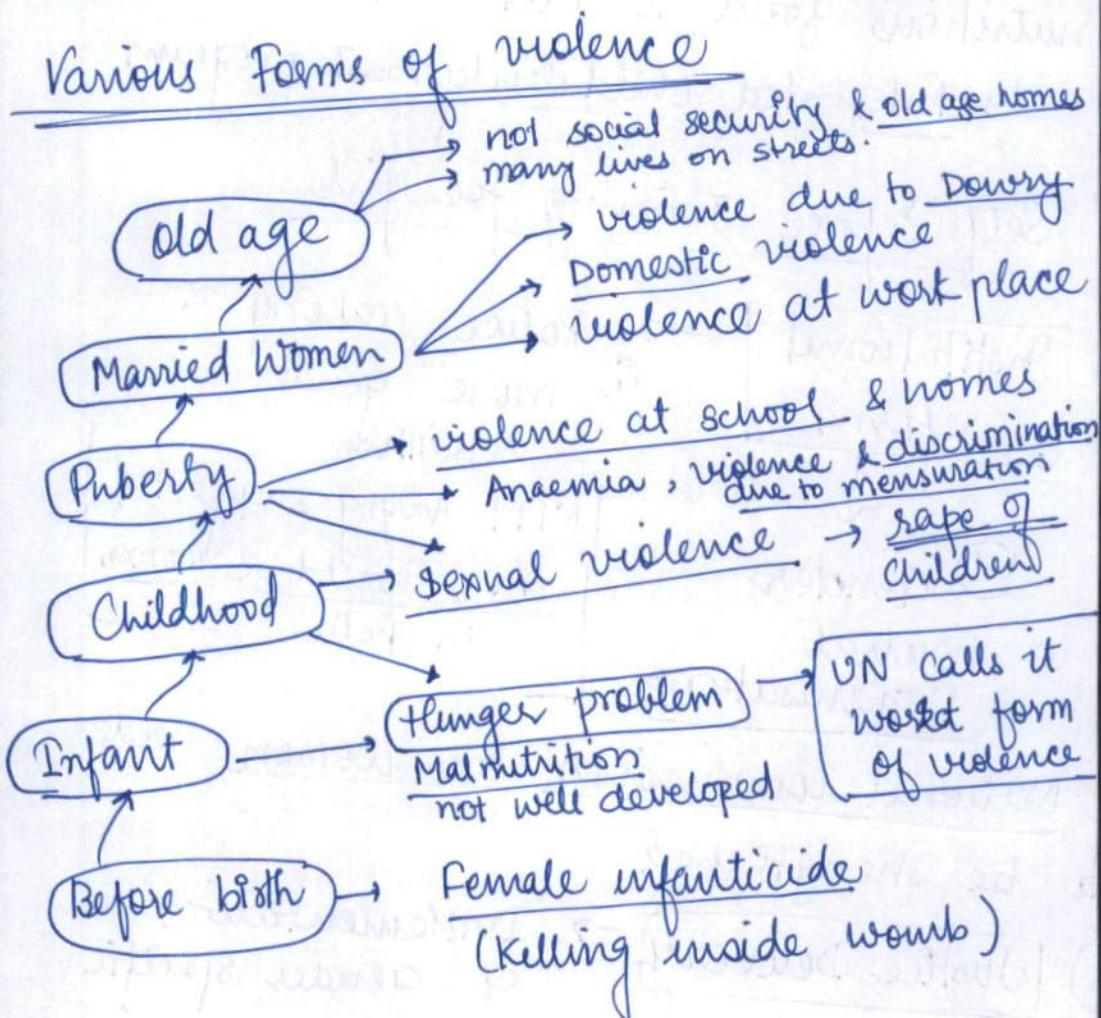 Various Forms of violence
not social security & old age homes
many lives on streets.
Old age
violence due to Dowry
Domestic violence
violence at work place
Married Women
violence at school & homes
Puberty
Anaemia, violence & discrimination
due to mensuration
Sexual violence → rape of
children
Childhood
Hunger problem
UN calls it
worst form
of violence
Infant
Malnutrition
not well developed
Before birth
Female infanticide
(Killing inside womb)